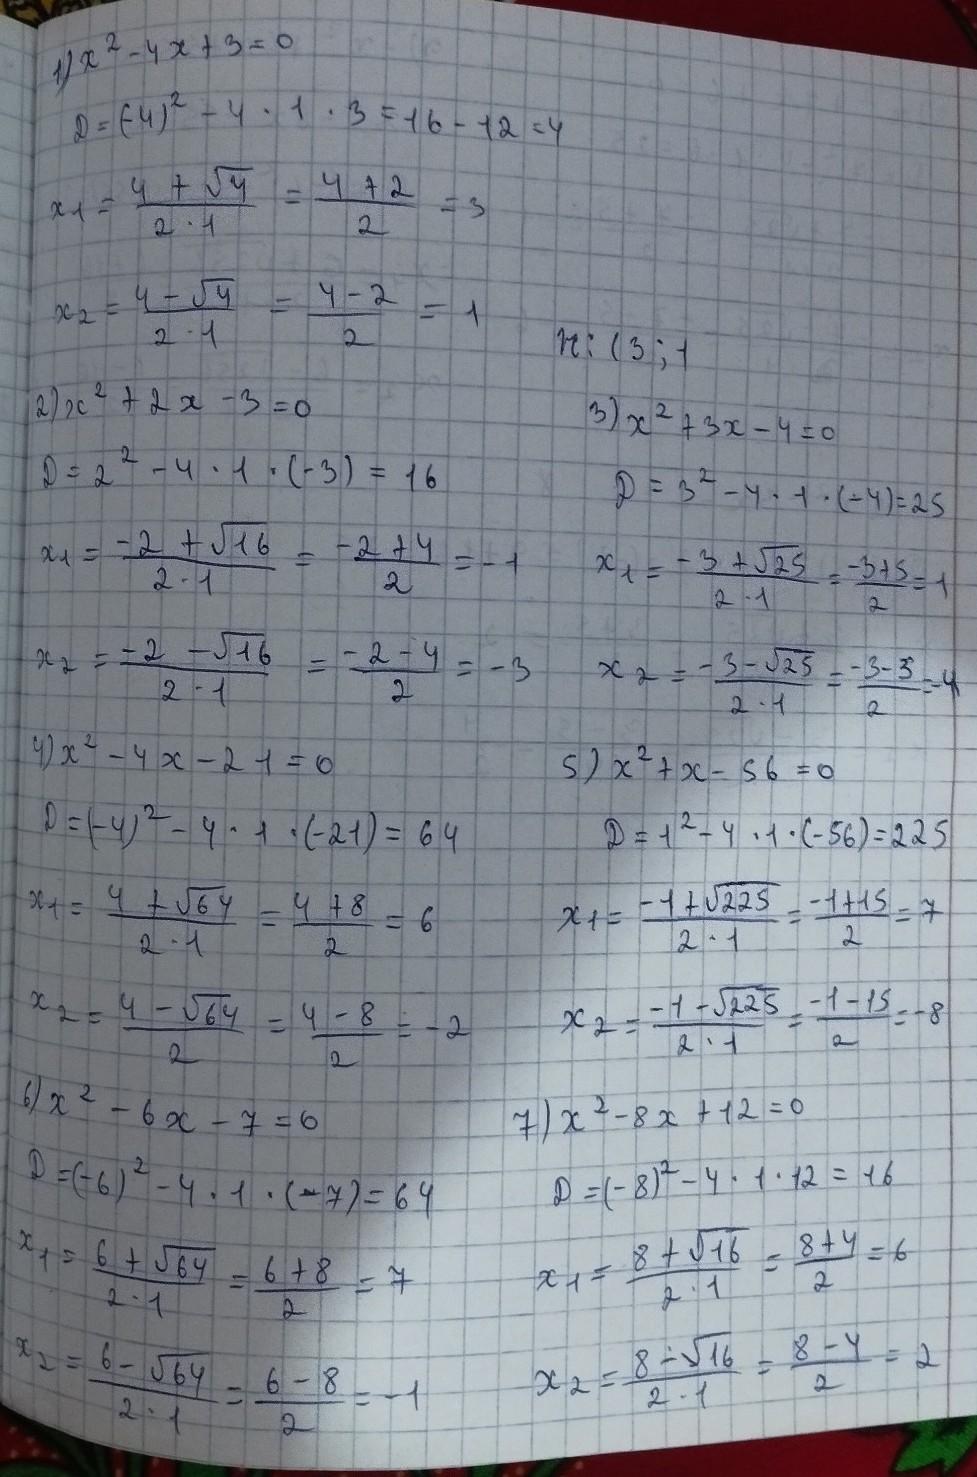 1) x² - 4x + 3 = 0
D = (-4)² - 4 · 1 · 3 = 16 - 12 = 4
x1 = (4 + √4)/(2 · 1) = (4 + 2)/2 = 3
x2 = (4 - √4)/(2 · 1) = (4 - 2)/2 = 1
(3 ; 1
2) x² + 2x - 3 = 0
D = 2² - 4 · 1 · (-3) = 16
x1 = (-2 + √16)/(2 · 1) = (-2 + 4)/2 = -1
x2 = (-2 - √16)/(2 · 1) = (-2 - 4)/2 = -3
3) x² + 3x - 4 = 0
D = 3² - 4 · 1 · (-4) = 25
x1 = (-3 + √25)/(2 · 1) = (-3 + 5)/2 = 1
x2 = (-3 - √25)/(2 · 1) = (-3 - 5)/2 = -4
4) x² - 4x - 21 = 0
D = (-4)² - 4 · 1 · (-21) = 64
x1 = (4 + √64)/(2 · 1) = (4 + 8)/2 = 6
x2 = (4 - √64)/2 = (4 - 8)/2 = -2
5) x² + x - 56 = 0
D = 1² - 4 · 1 · (-56) = 225
x1 = (-1 + √225)/(2 · 1) = (-1 + 15)/2 = 7
x2 = (-1 - √225)/(2 · 1) = (-1 - 15)/2 = -8
6) x² - 6x - 7 = 0
D = (-6)² - 4 · 1 · (-7) = 64
x1 = (6 + √64)/(2 · 1) = (6 + 8)/2 = 7
x2 = (6 - √64)/(2 · 1) = (6 - 8)/2 = -1
7) x² - 8x + 12 = 0
D = (-8)² - 4 · 1 · 12 = 16
x1 = (8 + √16)/(2 · 1) = (8 + 4)/2 = 6
x2 = (8 - √16)/(2 · 1) = (8 - 4)/2 = 2